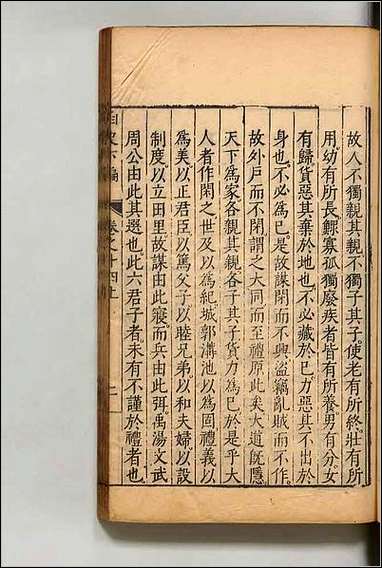 故人不獨親其親不獨子其子使老有所終壯有所
用幼有所長鰥寡孤獨廢疾者皆有所養男有分女
有歸貨惡其棄於地也不必藏於已力惡其不出於
身也不必為已是故謀閉而不興盜竊亂賊而不作
故外戶而不閉謂之大同而至禮原此矣大道旣隱
天下為家各親其親各子其子貨力為已於是乎大
人者作閑之世及以為紀城郭溝池以為固禮義以
為美以正君臣以篤父子以睦兄弟以和夫婦以設
制度以立田里故謀由此寢而兵由此弭禹湯文武
周公由此其選也此六君子者未有不謹於禮者也
卷之十四上